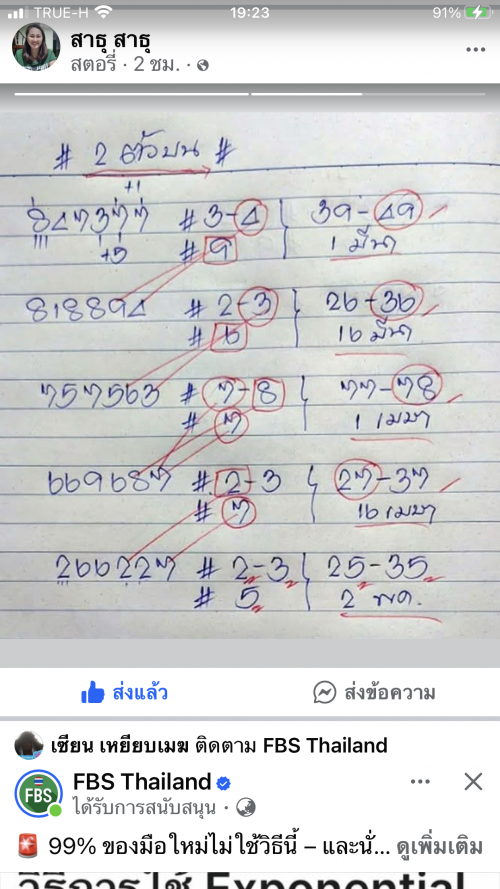 TRUE-H 19:23 91%
สาธุ สาธุ
สตอรี่ · 2 ชม. ·
# 2 ตัวบน #
+1
847377 #3-4 39-49
+5 #9 1 มีนา
818894 #2-3 26-36
#6 16 มีนา
757563 #7-8 77-78
#7 1 เมษา
669687 #2-3 27-37
#7 16 เมษา
266227 #2-3 25-35
#5 2 พค.
ส่งแล้ว ส่งข้อความ
เซียน เหยียบเมฆ ติดตาม FBS Thailand
FBS Thailand
FBS
ได้รับการสนับสนุน ·
🚨 99% ของมือใหม่ไม่ใช้วิธีนี้ – และนั่... ดูเพิ่มเติม
วิธีการใช้ Exponential